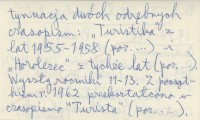 tynuacja dwóch odrębnych
czasopism: „Turistika" z
lat 1955-1958 (por. ...) i
„Horolezec" z tychże lat (por. ...).
Wyszły roczniki 11-13. Z począt-
kiem r. 1962 przekształcono w
czasopismo "Turista" (por. ...).